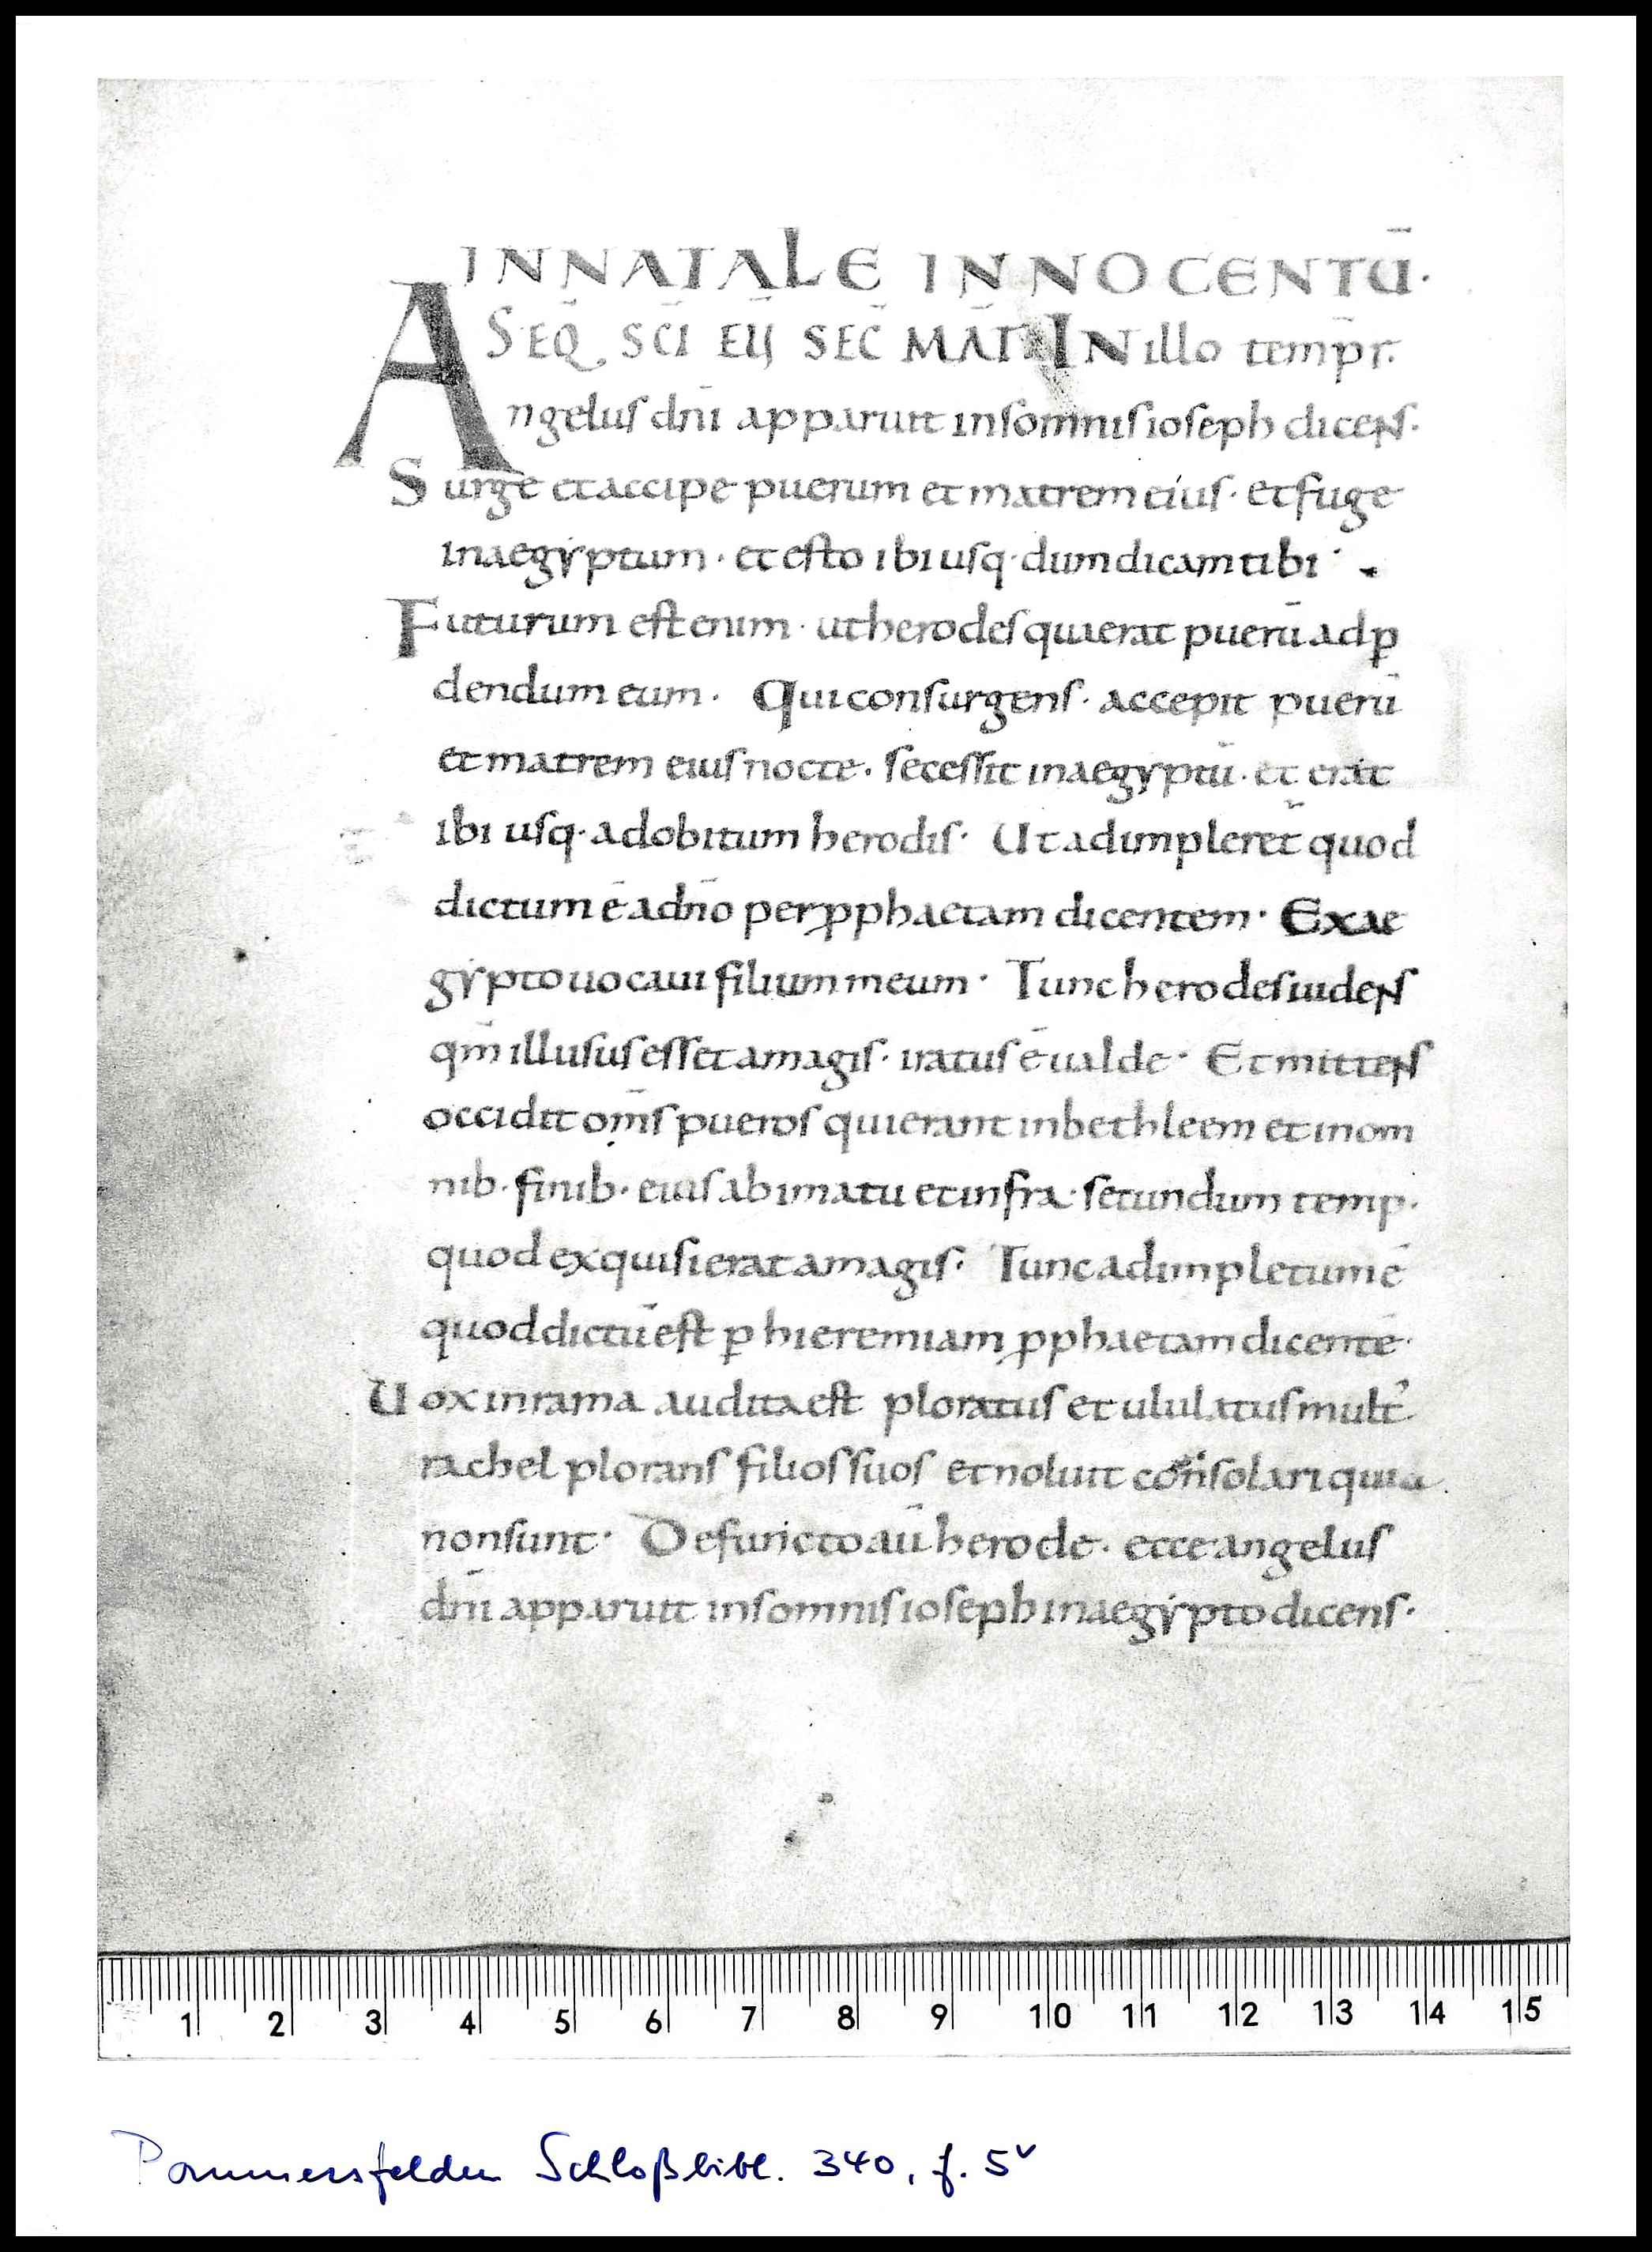 IN NATALE INNOCENTŪ·
SEQ̄ SCĪ EŪ SEC̄ MAT̄ IN illo temp̄r·
Angelus dn̄i apparuit insomnis ioseph dicens·
Surge et accipe puerum et matrem eius· et fuge
in aegẏptum· et esto ibi usq· dum dicam tibi·
Futurum est enim· ut herodes quaerat puerū ad ꝑ
dendum eum· Qui consurgens· accepit puerū
et matrem eius nocte· secessit in aegẏptū· et erat
ibi usq· ad obitum herodis· Ut adimpleret̄ quod
dictum ē a dn̄o per ꝓphaetam dicentem· Ex ae
gẏpto uocaui filium meum· Tunc herodes uidens
qm̄ illusus esset a magis· iratus ē ualde· Et mittens
occidit om̄s pueros qui erant in bethleem et in om
nib· finib· eius a bimatu et infra· secundum temp·
quod exquisierat a magis· Tunc adimpletum ē
quod dictū est ꝑ hieremiam ꝓphaetam dicentē·
Uox in rama audita est ploratus et ululatus mult᾽
rachel plorans filios suos et noluit consolari quia
non sunt· Defuncto aū herode· ecce angelus
dn̄i apparuit in somnis ioseph in aegẏpto dicens·
1 2 3 4 5 6 7 8 9 10 11 12 13 14 15
Pommersfelden Schloßbibl. 340, f. 5v